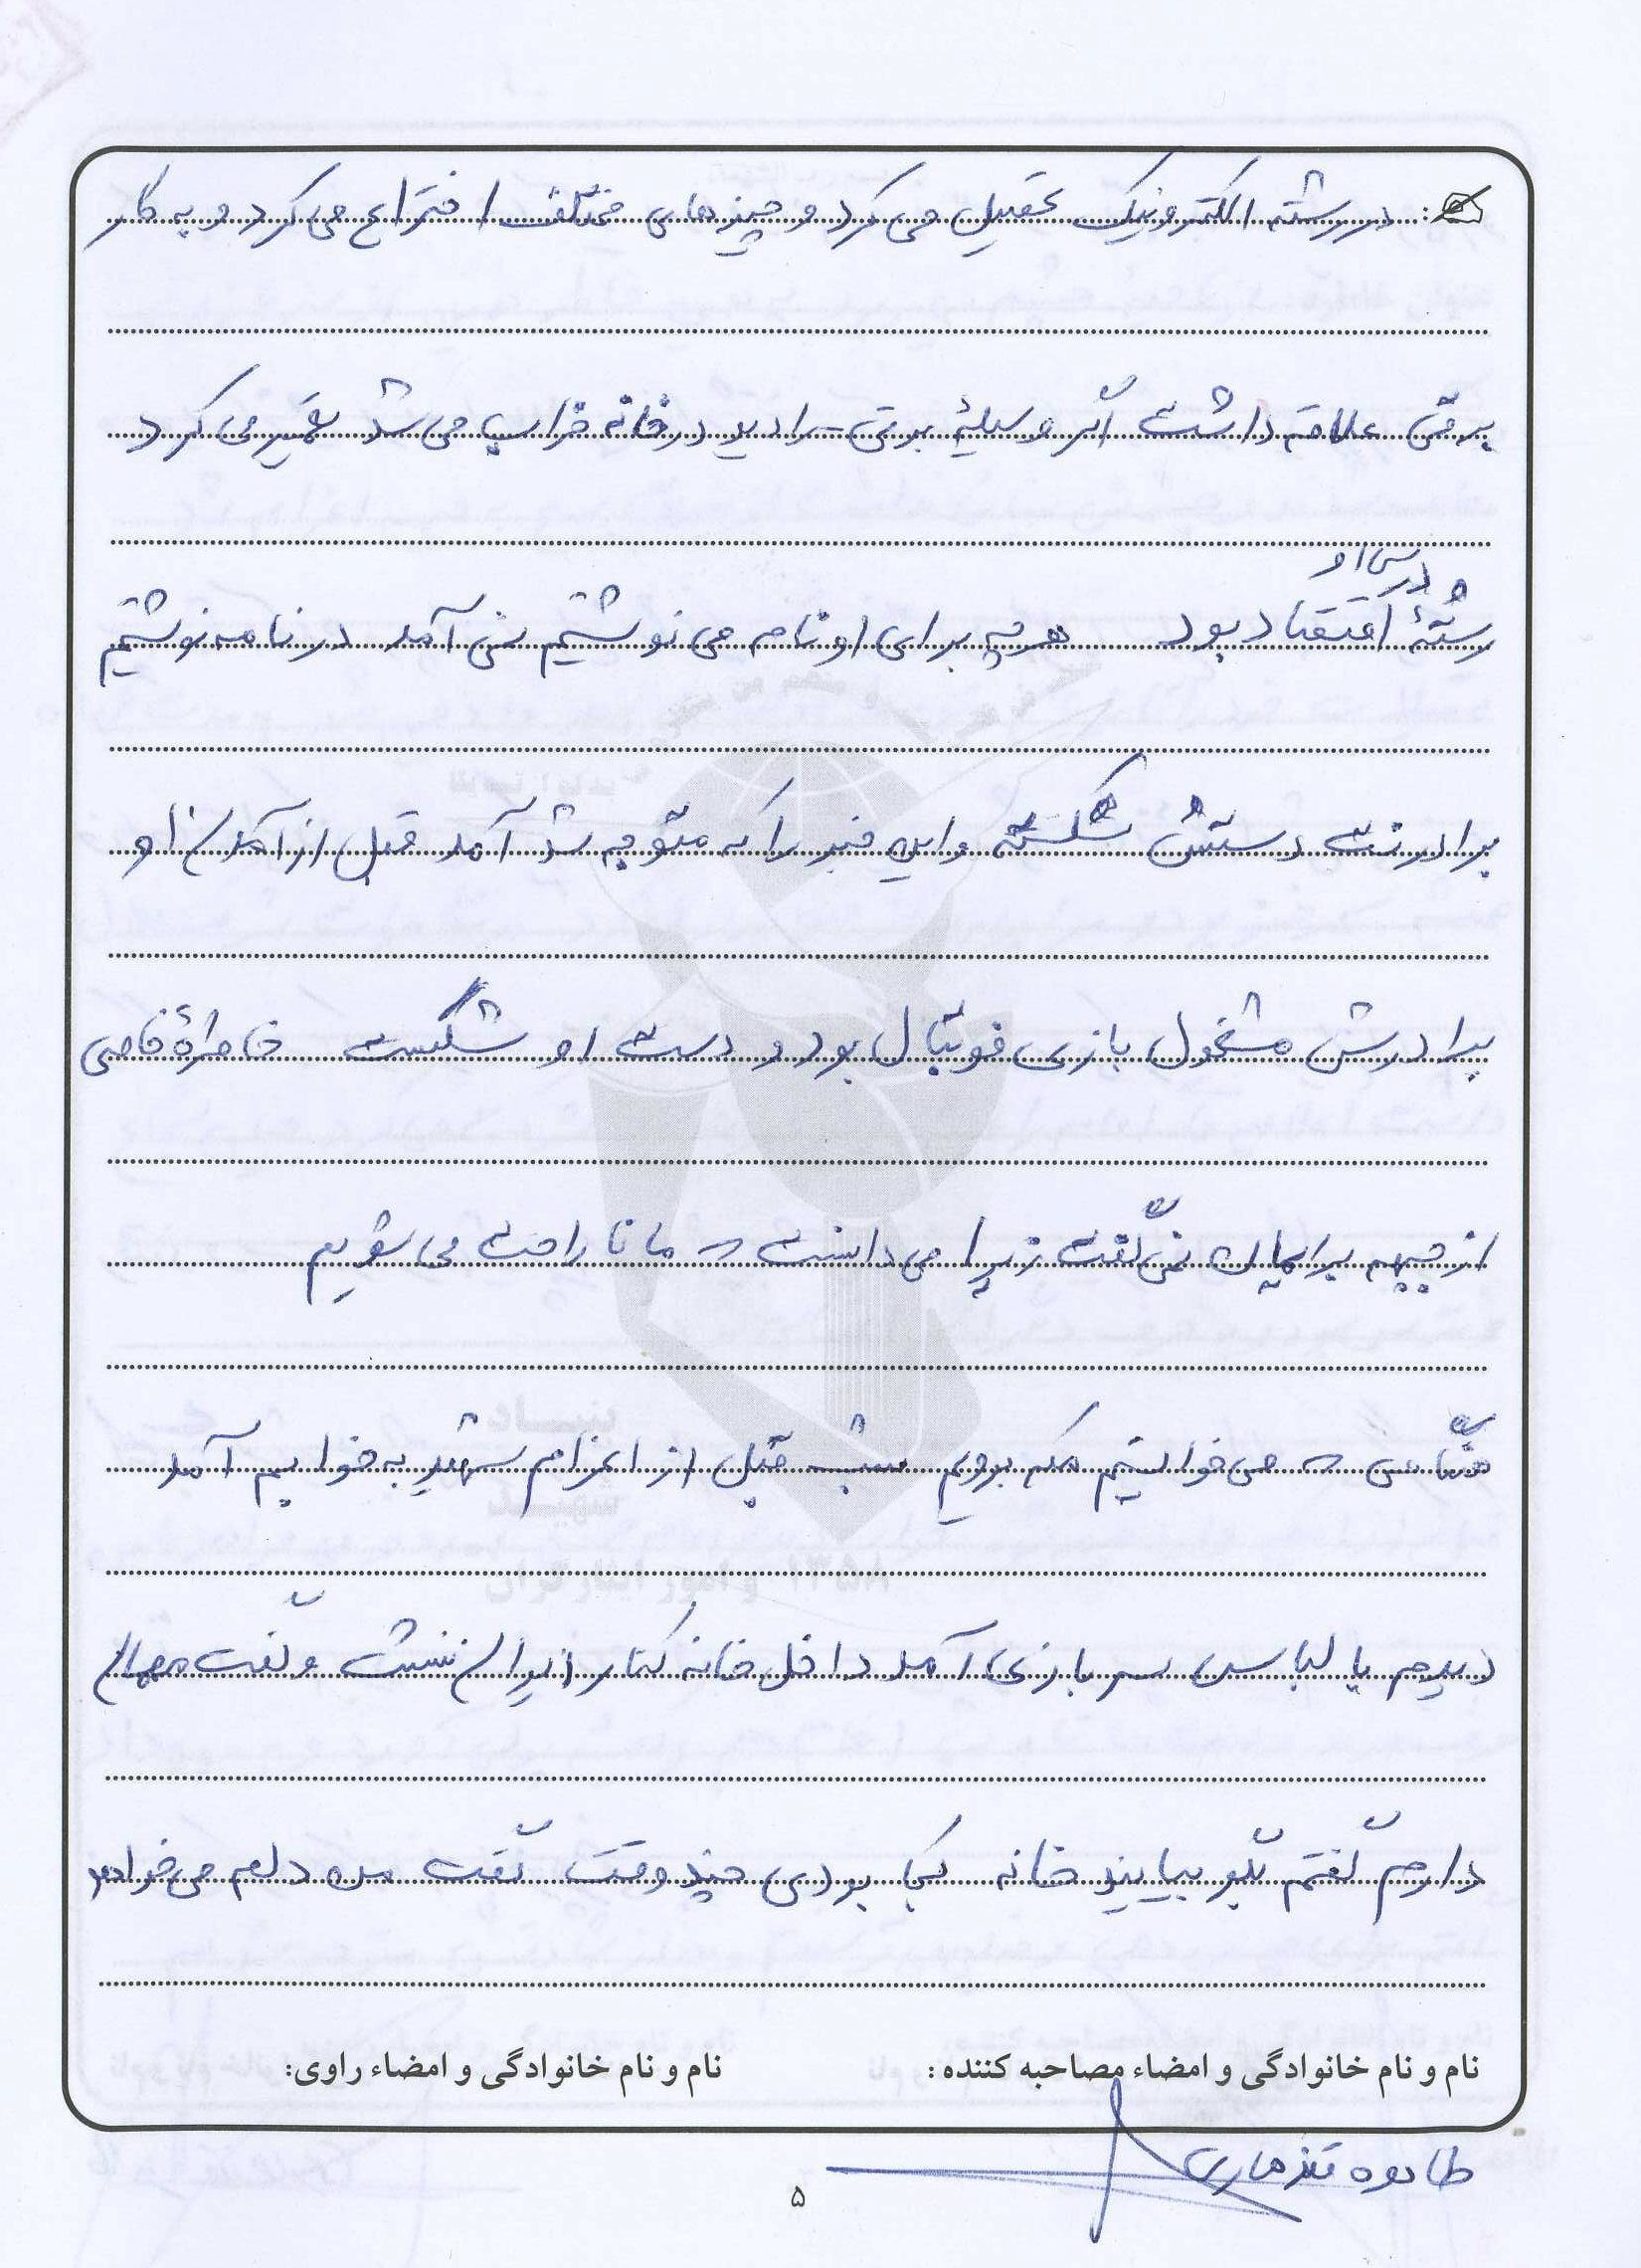 در رشته الکترونیک تحصیل می کرد و چیزهای مختلف اختراع می کرد و به کار
برقی علاقه داشت اگر وسیلهٔ برقی رادیو در خانه خراب می شد تعمیر می کرد
و درس او
رشتهٔ اقتصاد بود هر چه برای او نامه می نوشتیم نمی آمد در نامه نوشتیم
برادرت دستش شکسته و این خبر را که متوجه شد آمد قبل از آمدن او
برادرش مشغول بازی فوتبال بود و دست او شکست خاطرهٔ خاصی
از جبهه برایمان نمی گفت زیرا می دانست که ما ناراحت می شویم
هنگامی که می خواستیم مکه برویم شب قبل از اعزام شهید به خوابم آمد
دیدم با لباس سربازی آمد داخل خانه کنار ایوان نشست و گفت مهمان
دارم گفتم بگو بیایند خانه کجا بودی چند وقت گفت من دلم می خواهد
نام و نام خانوادگی و امضاء مصاحبه کننده : نام و نام خانوادگی و امضاء راوی:
طاهره قندهاری
۵
بنیاد
شهید
و امور ایثارگران ۱۳۵۸